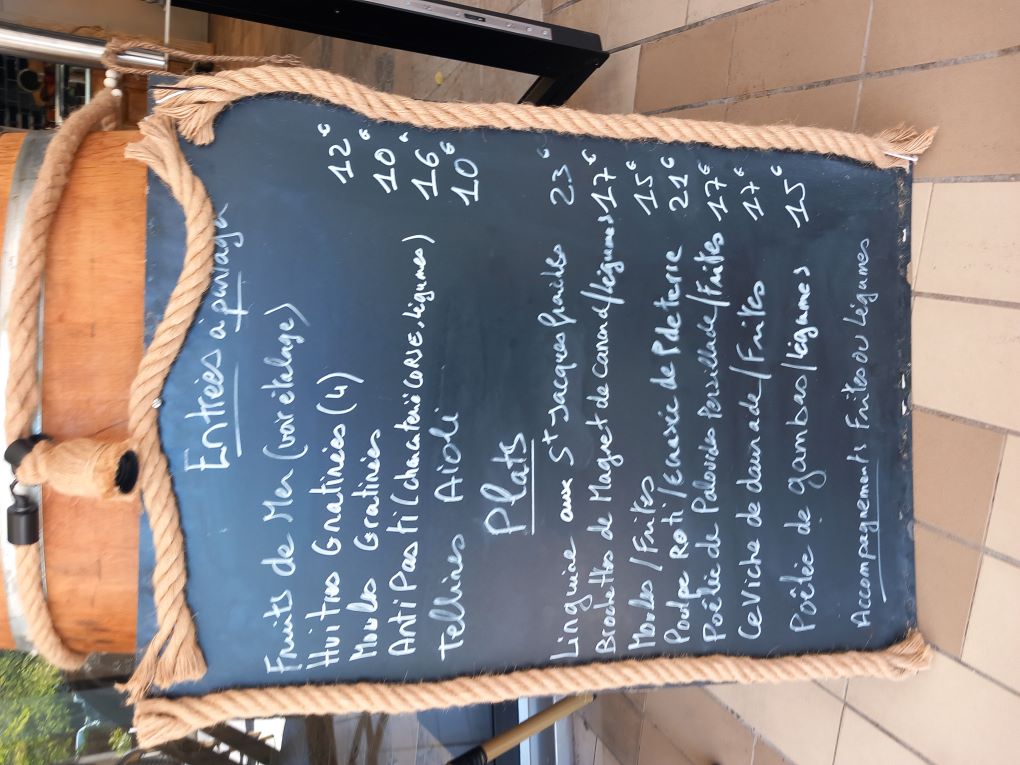 Entrées à partager
Fruits de Mer (voir étalage)
Huitres Gratinées (4) 12€
Moules Gratinées 10€
Anti Pasti (charcuterie CORSE, légumes) 16€
Tellines Aioli 10€
Plats
Linguine aux St Jacques fraiches 23€
Brochettes de Magret de canard/légumes 17€
Moules/Frites 15€
Poulpe Roti/Ecrasée de P de terre 21€
Poêlée de Palourdes Persillade/Frites 17€
Ceviche de daurade/Frites 17€
Poêlée de gambas/légumes 15€
Accompagnements Frites ou Légumes